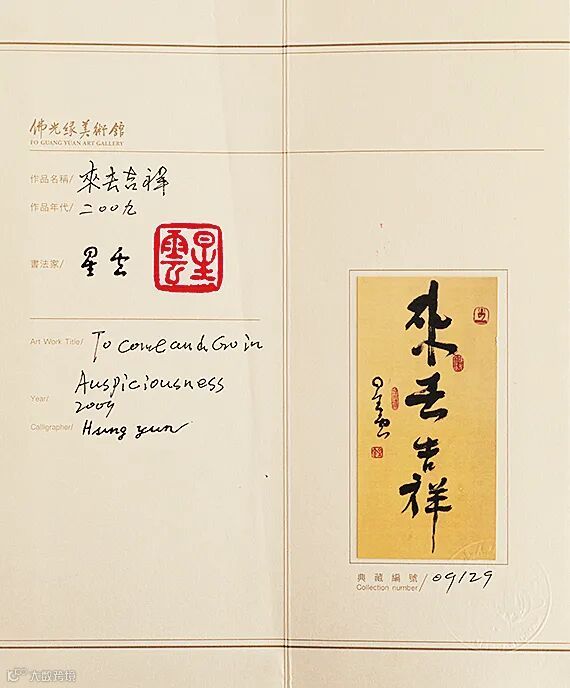 佛光緣美術館
FO GUANG YUAN ART GALLERY
作品名稱/ 來去吉祥
作品年代/ 二00九
書法家/ 星雲
星雲
Art Work Title/ To come and Go in
Auspiciousness
Year/ 2009
Calligrapher/ Hsing yun
來去吉祥
星雲
典藏編號
Collection number/ 09/29
大数跨境